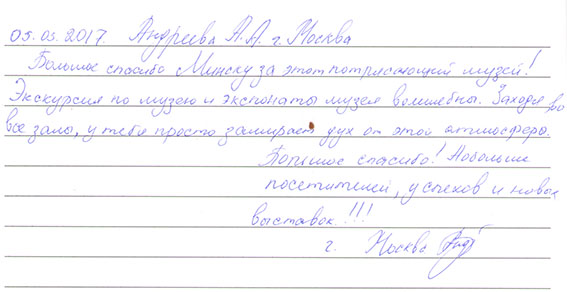 05.05.2017. Андреева А.А. г. Москва
Большое спасибо Минску за этот потрясающий музей!
Экскурсия по музею и экспонаты музея волшебны. Заходя во
все залы, у тебя просто замирает дух от этой атмосферы.
Большое спасибо! Побольше
посетителей, успехов и новых
выставок!!!
г. Москва